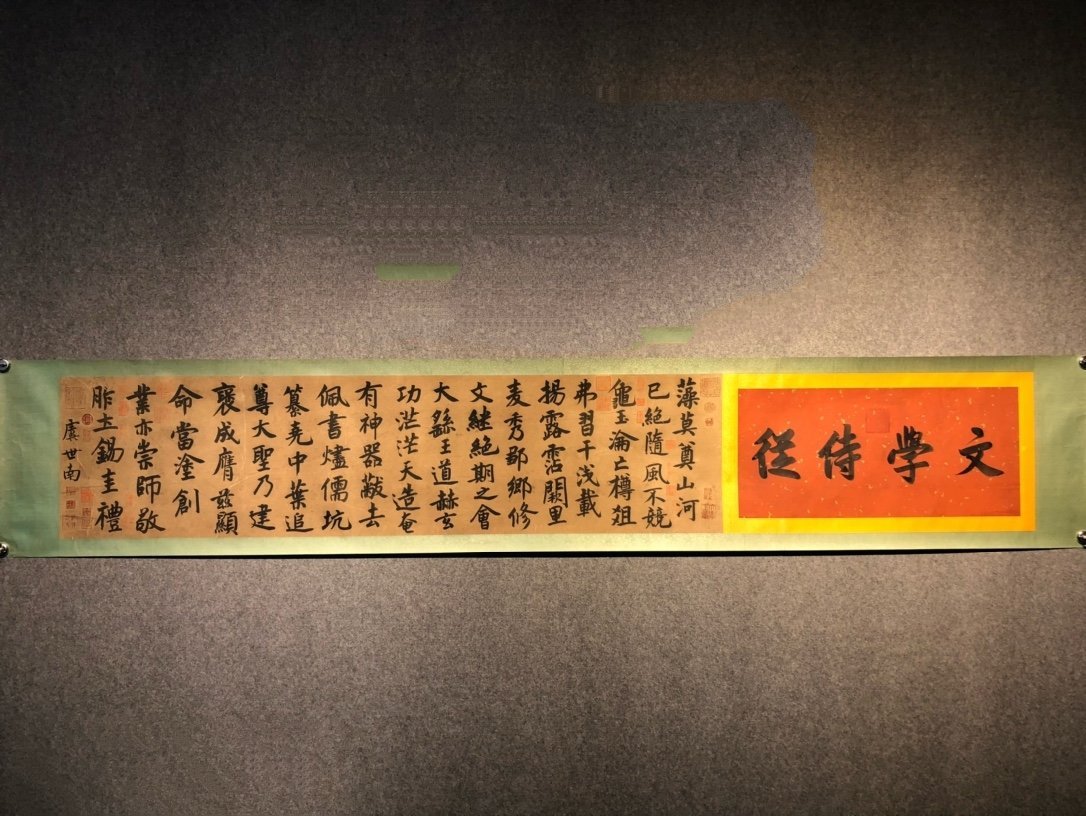 文學侍從
藻莫奠山河
已絕隨風不競
龜玉淪亡樽俎
弗習干浅載
揚露霑闕里
麦秀鄒鄉修
文継絕期之會
大繇王道赫玄
功茫茫天造奄
有神器黻去
佩書燼儒坑
纂堯中葉追
尊大聖乃建
褒成膺茲顯
命當塗創
業亦崇師敬
胙土錫圭禮
虞世南